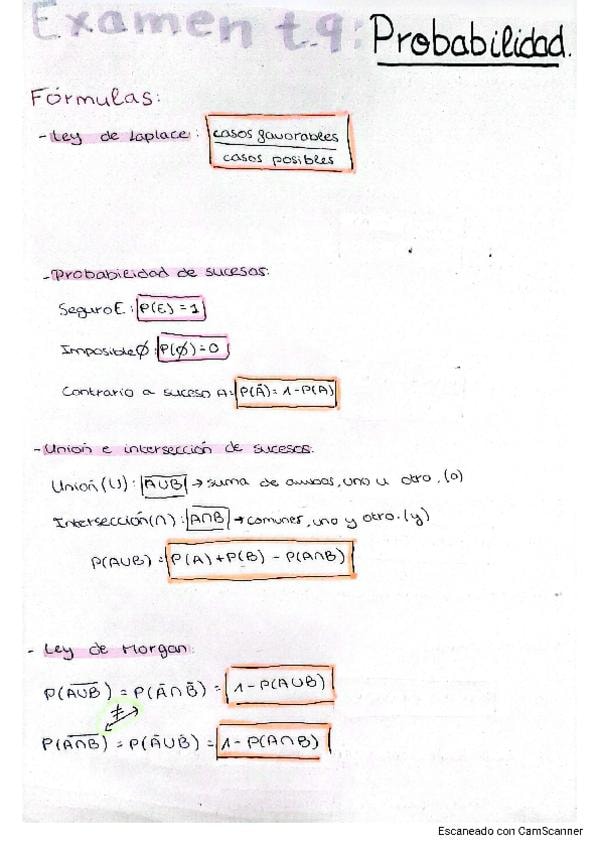 Examen t.9: Probabilidad.
Fórmulas:
- Ley de Laplace: casos favorables
casos posibles
- Probabilidad de sucesos:
Seguro E: P(E) = 1
Imposible Ø: P(Ø) = 0
Contrario a suceso A = P(Ā) = 1 - P(A)
- Unión e intersección de sucesos.
Unión (U): A∪B → suma de ambos, uno u otro. (o)
Intersección (∩): A∩B → comunes, uno y otro. (y)
P(A∪B) = P(A) + P(B) - P(A∩B)
- Ley de Morgan:
P(A̅∪̅B̅) = P(Ā∩B̄) = 1 - P(A∪B)
≠
P(A̅∩̅B̅) = P(Ā∪B̄) = 1 - P(A∩B)
Escaneado con CamScanner